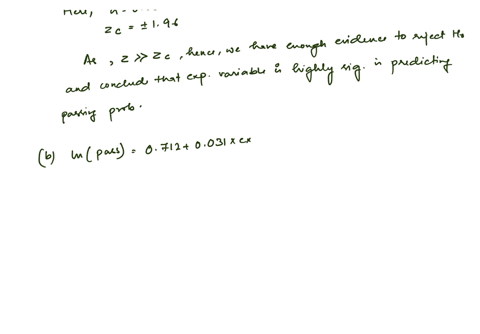 Here,
Zc = ± 1.96
As, Z >> Zc, hence, we have enough evidence to reject H₀
and conclude that exp. variable is highly sig. in predicting
passing prob.
(b) ln(pass) = 0.712 + 0.031 × ex